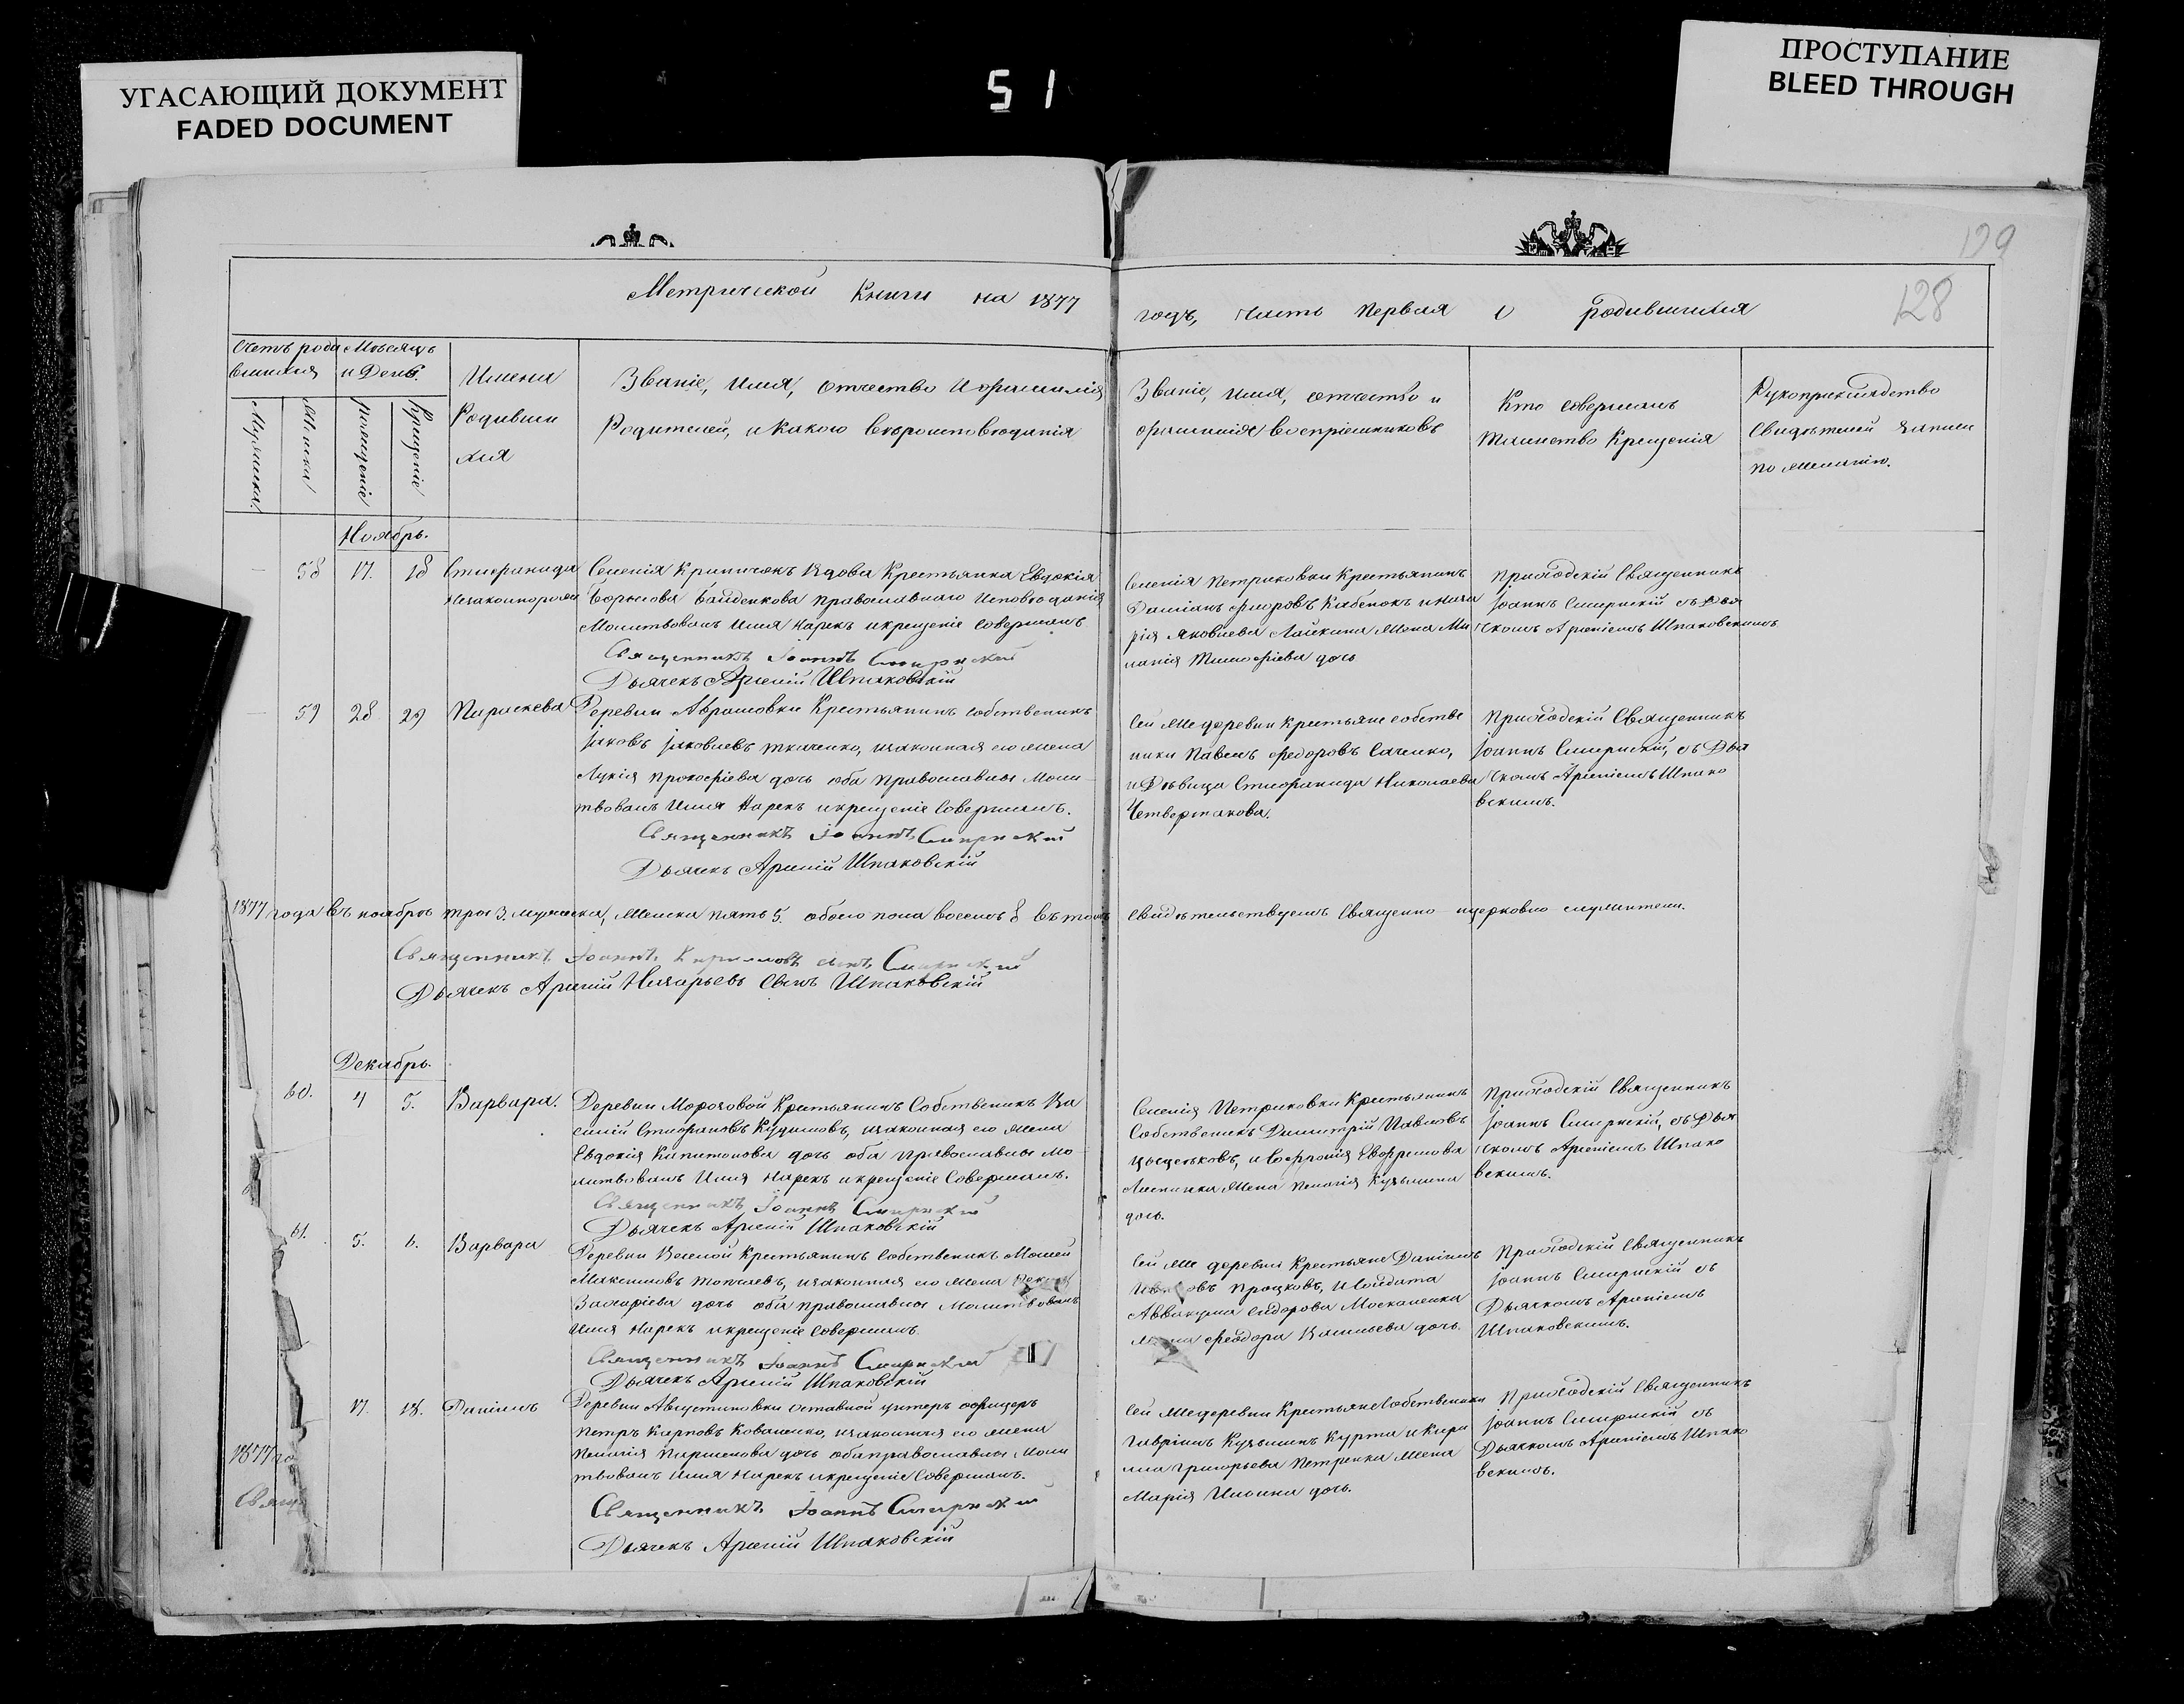 УГАСАЮЩИЙ ДОКУМЕНТ
FADED DOCUMENT
51
ПРОСТУПАНИЕ
BLEED THROUGH
129
128
Метрической Книги на 1877
годъ, часть первая о родившихся
Счетъ роди
вшихся
Мѣсяцъ
и День.
Мужеска.
Женска
рожденіе
Крещеніе
Имена
Родивши
хся
Званіе, имя, отчество и фамилія
Родителей, и какого вѣроисповѣданія
Званіе, имя, отчество и
фамилія воспріемниковъ
Кто совершалъ
таинство Крещенія
Рукоприкладство
свидѣтелей записи
по желанію.
Ноябрь.
58 17. 18 Стефанида
Незаконнорожд
Селенія Кринично вдова Крестьянка Евдокія
Борисова Байденкова православнаго исповѣданія
Молитвовалъ имя нарекъ и крещеніе совершалъ
Священникъ Іоаннъ Смирнскій
Дьячекъ Арсеній Шпаковскій
Селенія Петриковки Крестьянинъ
Даміанъ Кабенокъ
Яковлева Лайкина жена
дочь
Приходскій Священникъ
Іоаннъ Смирнскій съ Дья
чкомъ Арсеніемъ Шпаковскимъ
59 28 29 Параскева
Деревни Аврамовки Крестьянинъ собственикъ
Іаковъ Іаковлевъ Ткаченко, и законная его жена
Лукія Прокофіева дочь оба православные Моли
твовалъ имя нарекъ и крещеніе совершалъ.
Священникъ Іоаннъ Смирнскій
Дьячекъ Арсеній Шпаковскій
Сей же деревни крестьяне собстве
ники Павелъ Федоровъ Саченко,
и Дѣвица Стефанида Николаева
Четвертакова.
Приходскій Священникъ
Іоаннъ Смирнскій, съ Дья
чкомъ Арсеніемъ Шпако
вскимъ.
1877 года въ ноябрѣ трое 3. мужеска, женска пять 5. обоего пола восемь 8 въ томъ свидѣтельствуемъ Священно-церковно служители.
Священникъ Іоаннъ Кирилловъ сынъ Смирнскій
Дьячекъ Арсеній Назарьевъ сынъ Шпаковскій
Декабрь.
60. 4 5. Варвара.
Деревни Морозовой Крестьянинъ Собственикъ Ва
силій Стефановъ Кудимовъ, и законная его жена
Евдокія Капитонова дочь оба православные Мо
литвовалъ имя нарекъ и крещеніе совершалъ.
Священникъ Іоаннъ Смирнскій
Дьячекъ Арсеній Шпаковскій
Селенія Петриковки Крестьянинъ
Собственикъ Димитрій Павловъ
и Софронія Ефремова
жена Пелагія Кузьмина
дочь.
Приходскій Священникъ
Іоаннъ Смирнскій, съ Дья
чкомъ Арсеніемъ Шпако
вскимъ.
61. 5. 6. Варвара
Деревни Веселой Крестьянинъ Собственикъ Моисей
Максимовъ Топчаевъ, и законная его жена
Захаріева дочь оба православные Молитвовалъ
имя нарекъ и крещеніе совершалъ.
Священникъ Іоаннъ Смирнскій
Дьячекъ Арсеній Шпаковскій
Сей же деревни Крестьяне Даніилъ
Процковъ, и Солдата
Аввакума Сидорова Москаленка
Феодора Васильева дочь.
Приходскій Священникъ
Іоаннъ Смирнскій съ
Дьячкомъ Арсеніемъ
Шпаковскимъ.
17. 18. Даніилъ
Деревни Августиновки отставной унтеръ офицеръ
Петръ Карповъ Коваленко, и законная его жена
Пелагія Парменова дочь оба православные Моли
твовалъ имя нарекъ и крещеніе совершалъ.
Священникъ Іоаннъ Смирнскій
Дьячекъ Арсеній Шпаковскій
Сей же деревни Крестьяне Собственики
Гавріилъ Кузьминъ Курта и Кири
ла Григорьева Петренка жена
Марія Ильина дочь.
Приходскій Священникъ
Іоаннъ Смирнскій съ
Дьячкомъ Арсеніемъ Шпако
вскимъ.
1877 го
Свящ